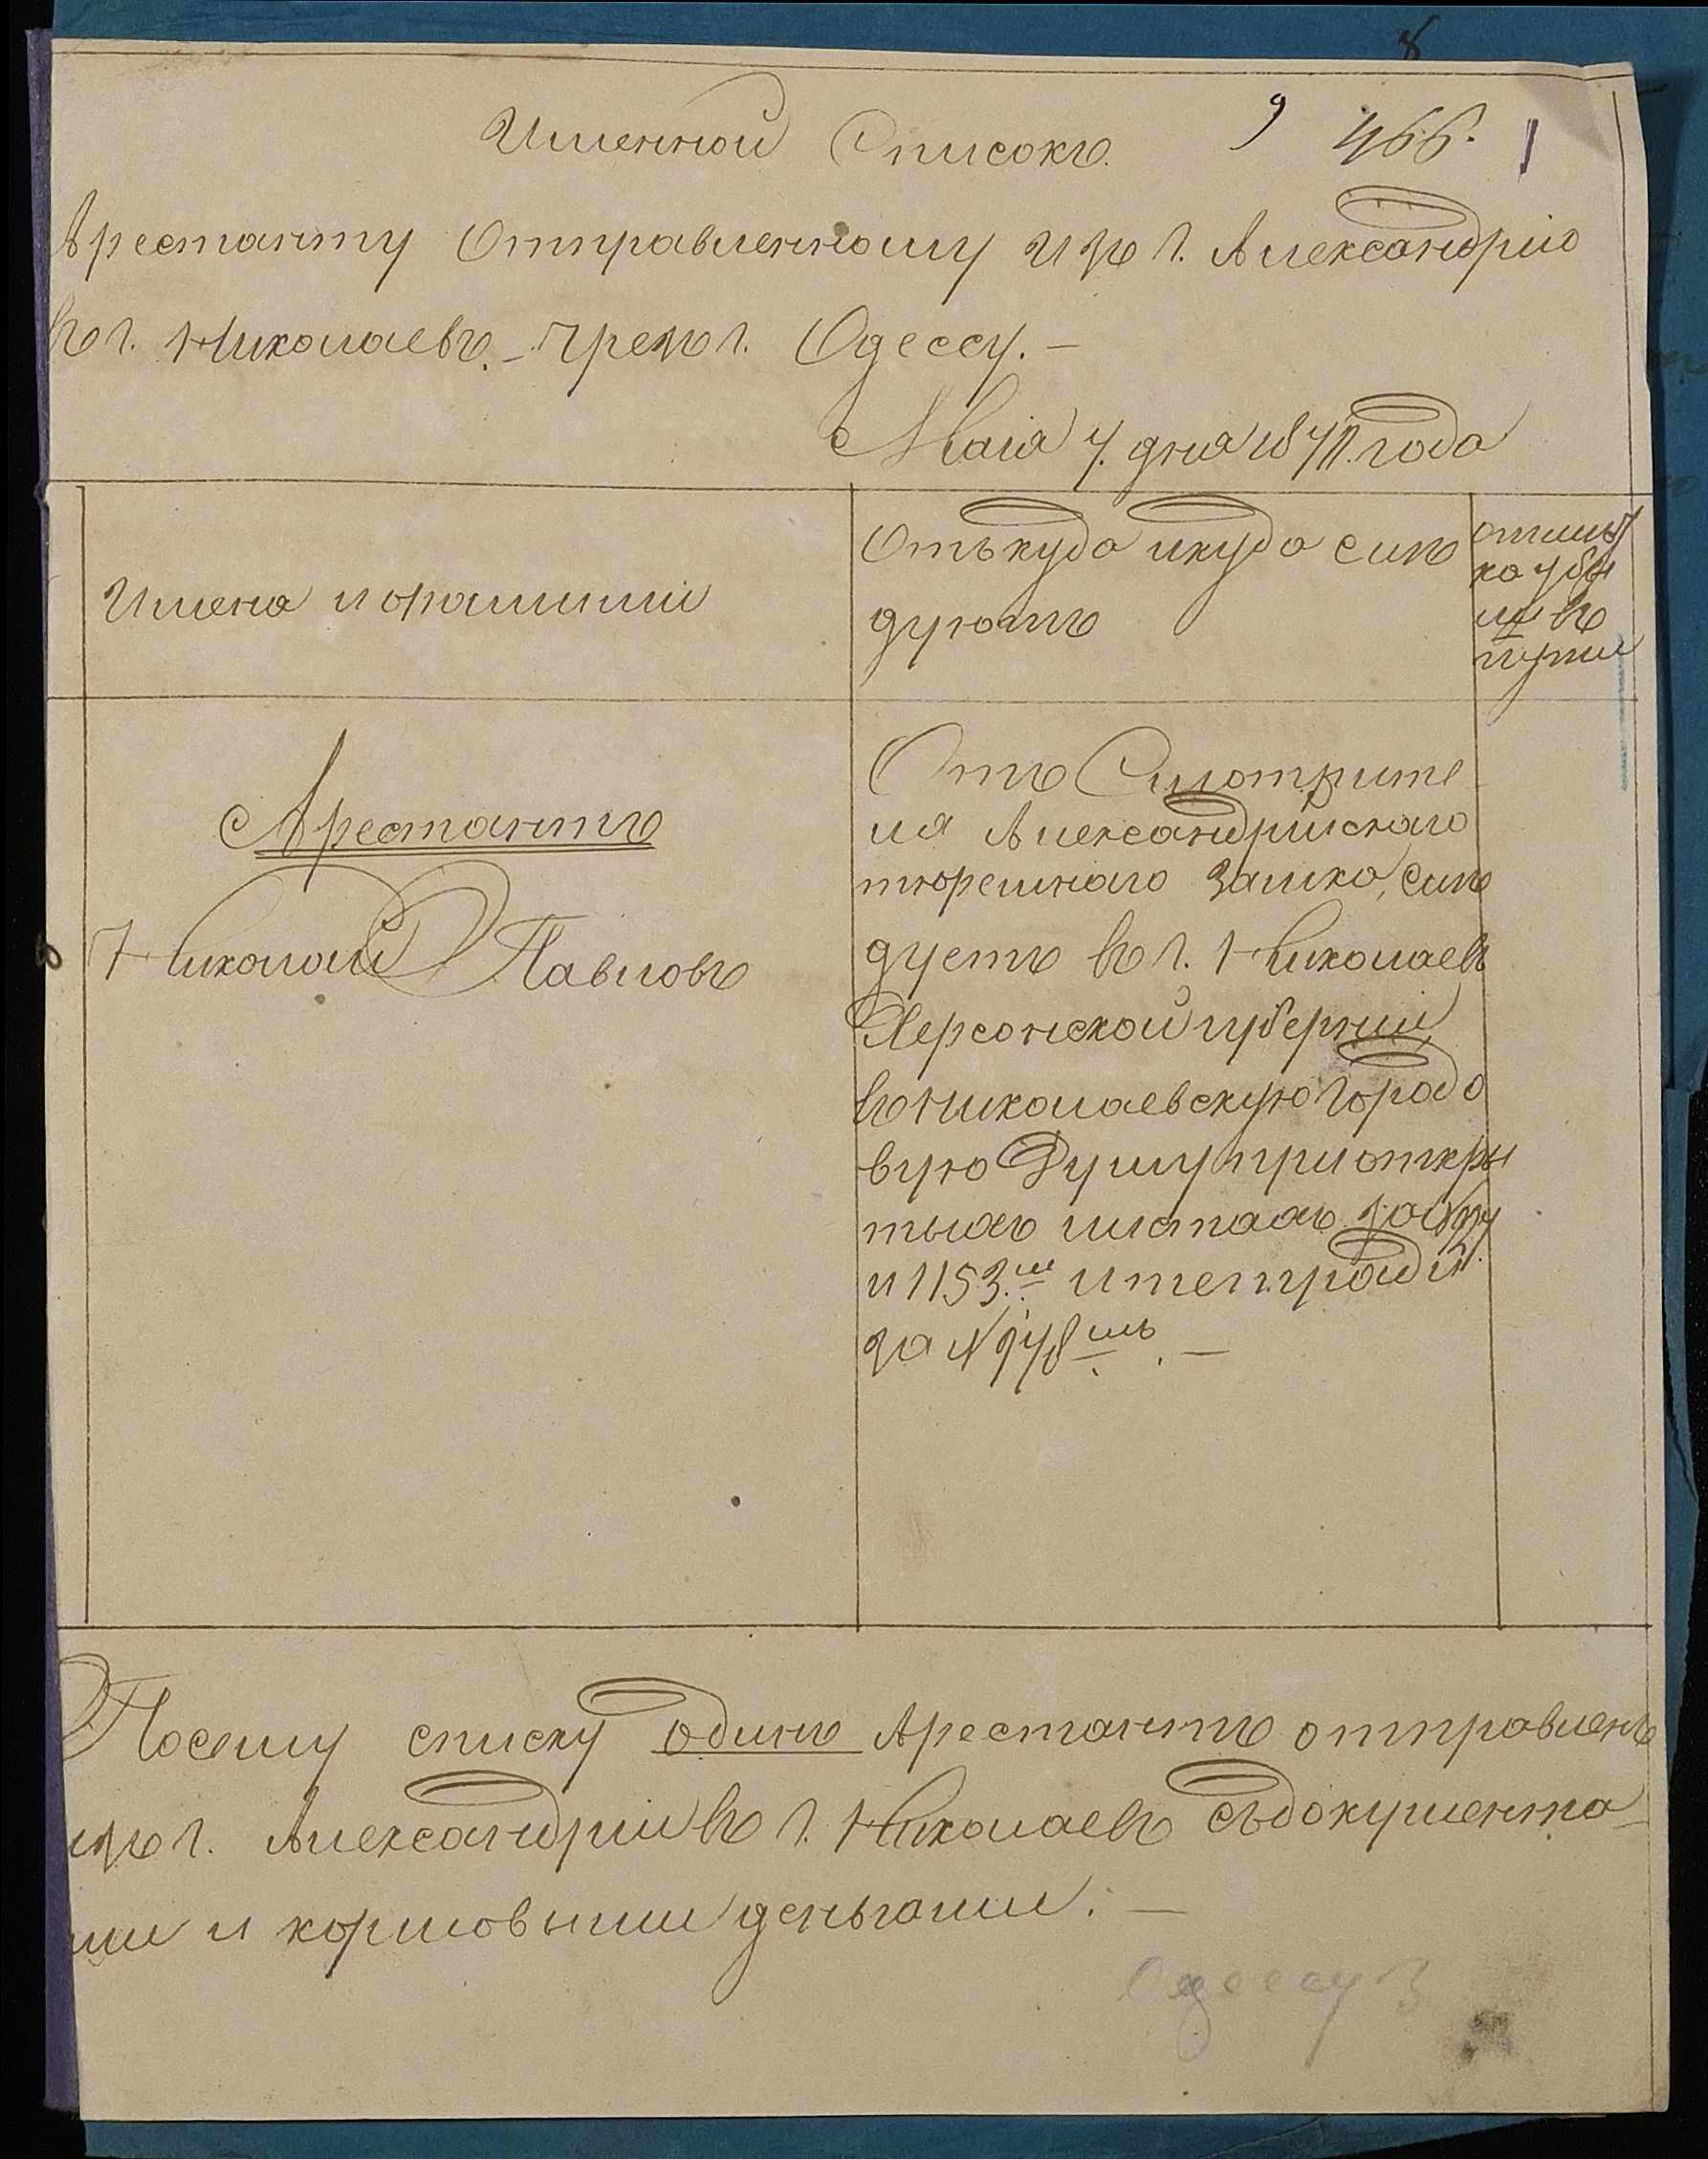 8
Именной Списокъ. 9 466.
Арестанту Отправленному изъ г. Александріи
въ г. Николаевъ. – чрезъ г. Одессу. –
Маія 7. дня 1871. года
Имена и фамиліи
Отъкуда икуда слѣ
дуютъ
отмѣт
ка убы
ли въ
пути
Арестантъ
Николай Павловъ
Отъ Смотрите
ля Александрійскаго
тюремнаго Замка, слѣ
дуетъ въ г. Николаевъ
Херсонской губерніи,
въ Николаевскую Городо
вую Думу при откры
тыхъ листахъ за №
и 1153.мъ и тетради
за № 278мъ. –
Посему списку одинъ Арестантъ отправленъ
изъ г. Александріи въ г. Николаевъ съдокумента
ми и кормовыми деньгами. –
Одессу 3